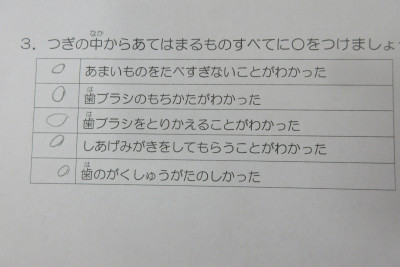 3．つぎの中からあてはまるものすべてに○をつけましょ
○ あまいものをたべすぎないことがわかった
○ 歯ブラシのもちかたがわかった
○ 歯ブラシをとりかえることがわかった
○ しあげみがきをしてもらうことがわかった
○ 歯のがくしゅうがたのしかった